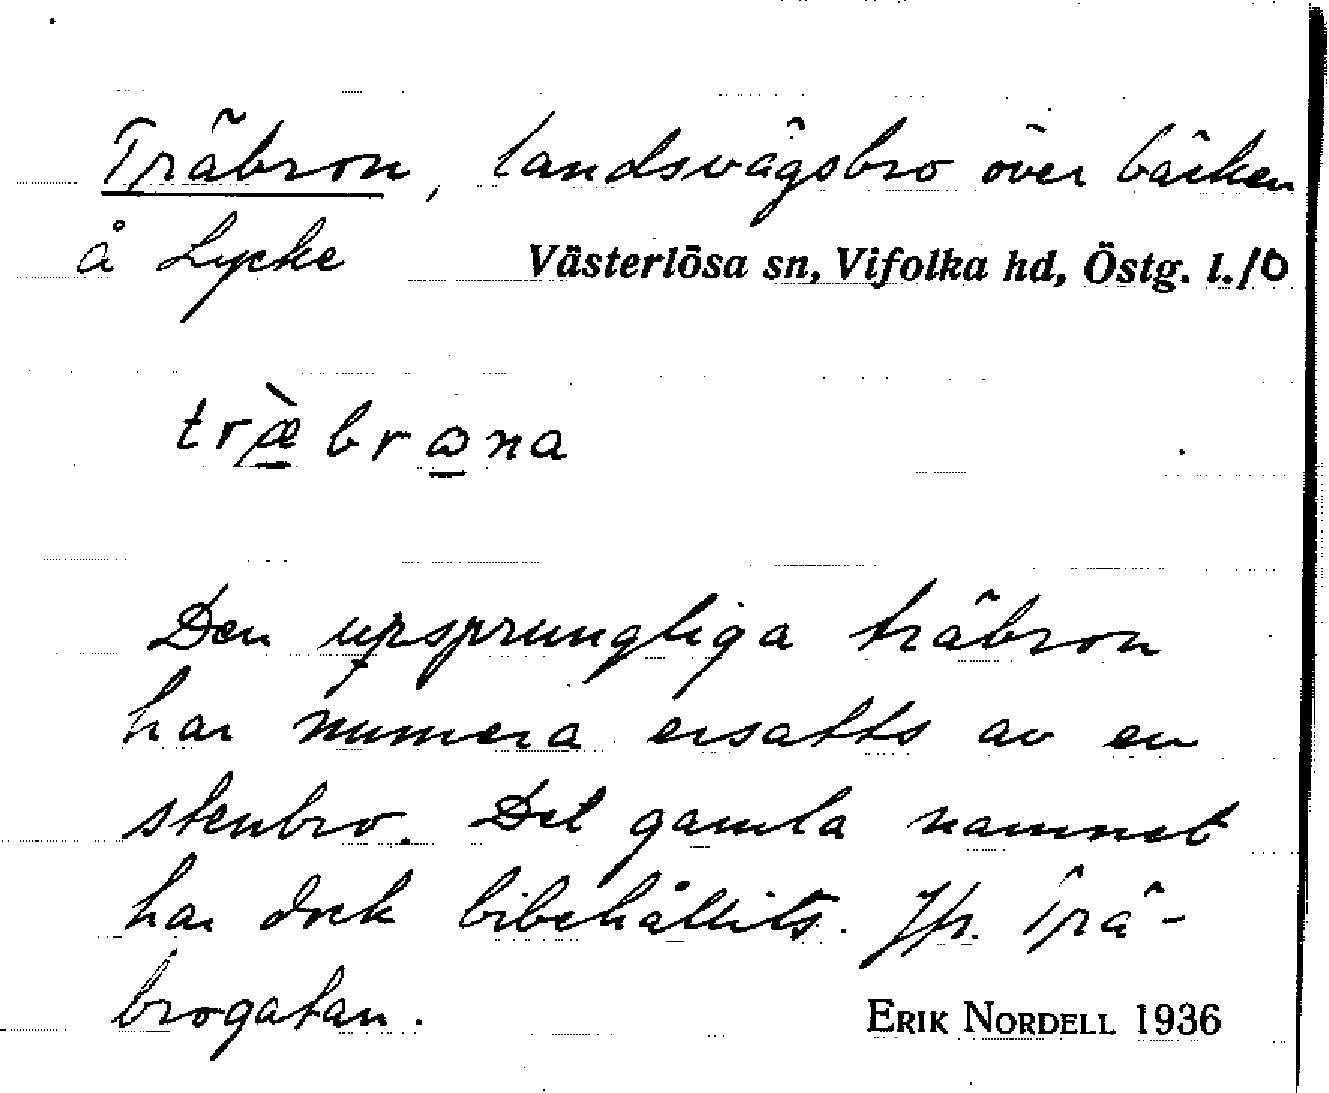 Träbron, landsvägsbro över bäcken
å Lycke Västerlösa sn, Vifolka hd, Östg. l./0
træ̀brωna
Den ursprungliga träbron
har numera ersatts av en
stenbro. Det gamla namnet
har dock bibehållits. Jfr. Trä-
brogatan.
ERIK NORDELL 1936